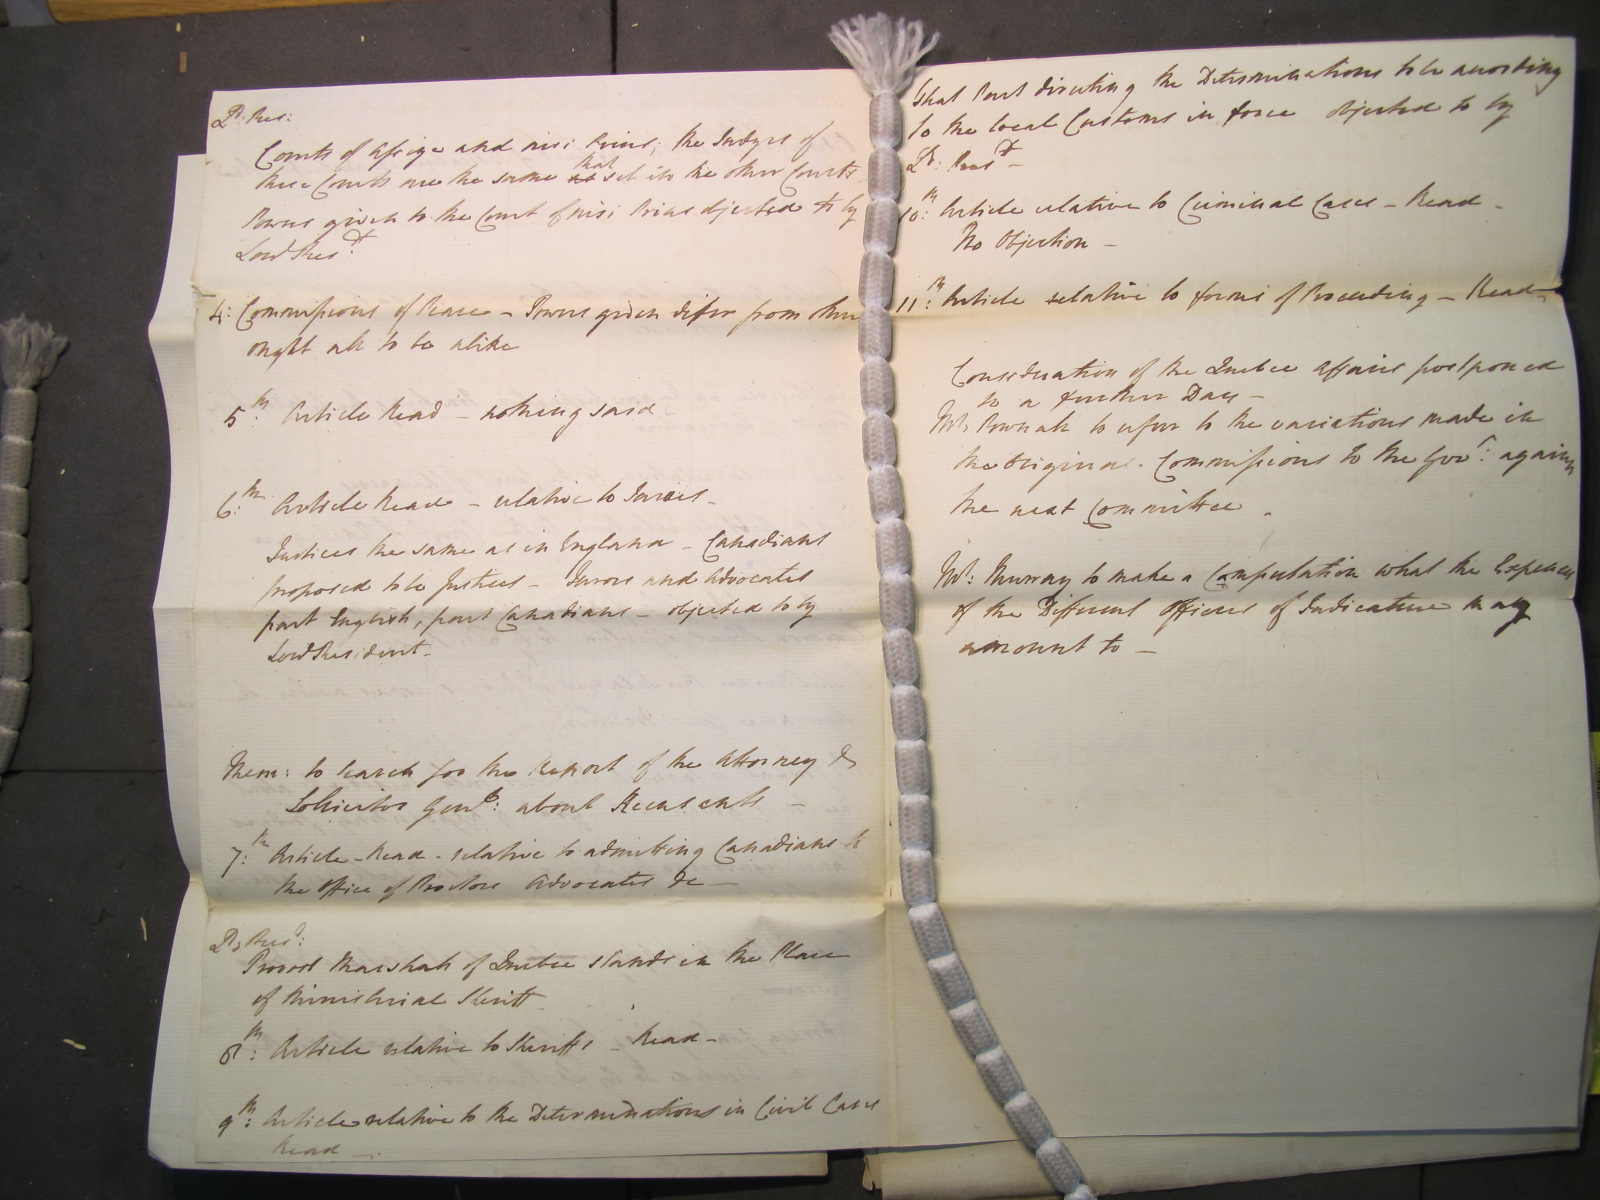 Ld. Pres:
Courts of Assize and nisi Prius; the Judges of
these Courts are the same that set in the other Courts
Powers given to the Court of nisi Prius objected to by
Lord Presdt.
4: Commissions of Peace – Powers given differ from other
ought all to be alike
5th: Article Read – nothing said
6th: Article Read – relative to Juries –
Justices the same as in England – Canadians
proposed to be Justices – Jurors and Advocates
part English, part Canadians – objected to by
Lord President –
Mem: to search for the Report of the Attorney &
Sollicitor Genl: about Recusants –
7th: Article – Read – relative to admitting Canadians to
the office of Proctors Advocates &c –
Ld, Prest:
Provost Marshall of Quebec stands in the Place
of Ministerial Sheriff
8th: Article relative to Sheriffs – Read –
9th: Article relative to the Determinations in Civil Cases
Read –
that Part directing the Determinations to be according
to the local Customs in force objected to by
Ld: Presdt –
10th: Article relative to Criminal Cases – Read –
No Objection –
11th: Article relative to forms of Proceeding – Read –
Consideration of the Quebec Affairs postponed
to a further Day –
Mr, Pownall to refer to the variations made in
the Original Commissions to the Govr: against
the next Committee .
Mr: Murray to make a Computation what the Expences
of the Different Offices of Judicature may
amount to –